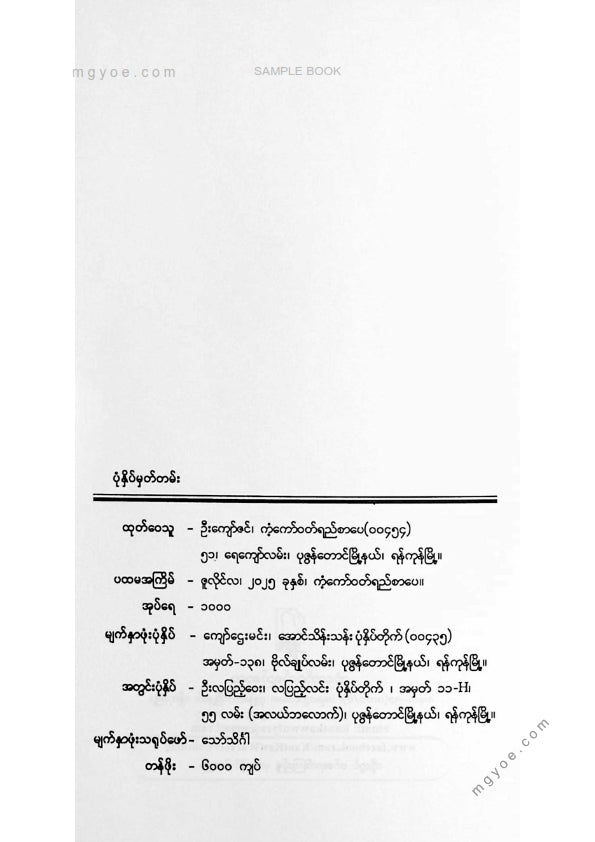 mgyoe.com
SAMPLE BOOK
ပုံနှိပ်မှတ်တမ်း
ထုတ်ဝေသူ - ဦးကျော်ဇင်၊ ကံ့ကော်ဝတ်ရည်စာပေ(၀၀၄၅၄)
၅၁၊ ရေကျော်လမ်း၊ ပုဇွန်တောင်မြို့နယ်၊ ရန်ကုန်မြို့။
ပထမအကြိမ် - ဇူလိုင်လ၊ ၂၀၂၅ ခုနှစ်၊ ကံ့ကော်ဝတ်ရည်စာပေ။
အုပ်ရေ - ၁၀၀၀
မျက်နှာဖုံးပုံနှိပ် - ကျော်ဌေးမင်း၊ အောင်သိန်းသန်း ပုံနှိပ်တိုက် (၀၀၄၃၅)
အမှတ်-၁၃၈၊ ဗိုလ်ချုပ်လမ်း၊ ပုဇွန်တောင်မြို့နယ်၊ ရန်ကုန်မြို့။
အတွင်းပုံနှိပ် - ဦးလပြည့်ဝေး၊ လပြည့်လင်း ပုံနှိပ်တိုက် ၊ အမှတ် ၁၁-H၊
၅၅ လမ်း (အလယ်ဘလောက်)၊ ပုဇွန်တောင်မြို့နယ်၊ ရန်ကုန်မြို့။
မျက်နှာဖုံးသရုပ်ဖော် - သော်သိင်္ဂါ
တန်ဖိုး - ၆၀၀၀ ကျပ်
mgyoe.com